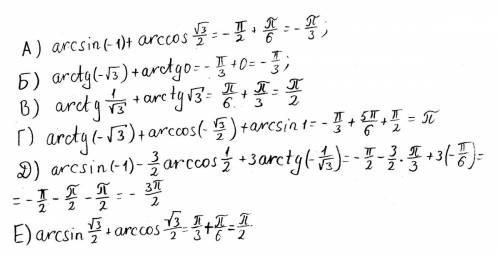 А) arcsin(-1) + arccos √3/2 = -π/2 + π/6 = -π/3;
Б) arctg(-√3) + arctg0 = -π/3 + 0 = -π/3;
В) arctg 1/√3 + arctg √3 = π/6 + π/3 = π/2
Г) arctg(-√3) + arccos(-√3/2) + arcsin 1 = -π/3 + 5π/6 + π/2 = π
Д) arcsin(-1) - 3/2 arccos 1/2 + 3arctg(-1/√3) = -π/2 - 3/2 · π/3 + 3(-π/6) =
= -π/2 - π/2 - π/2 = - 3π/2
Е) arcsin √3/2 + arccos √3/2 = π/3 + π/6 = π/2.